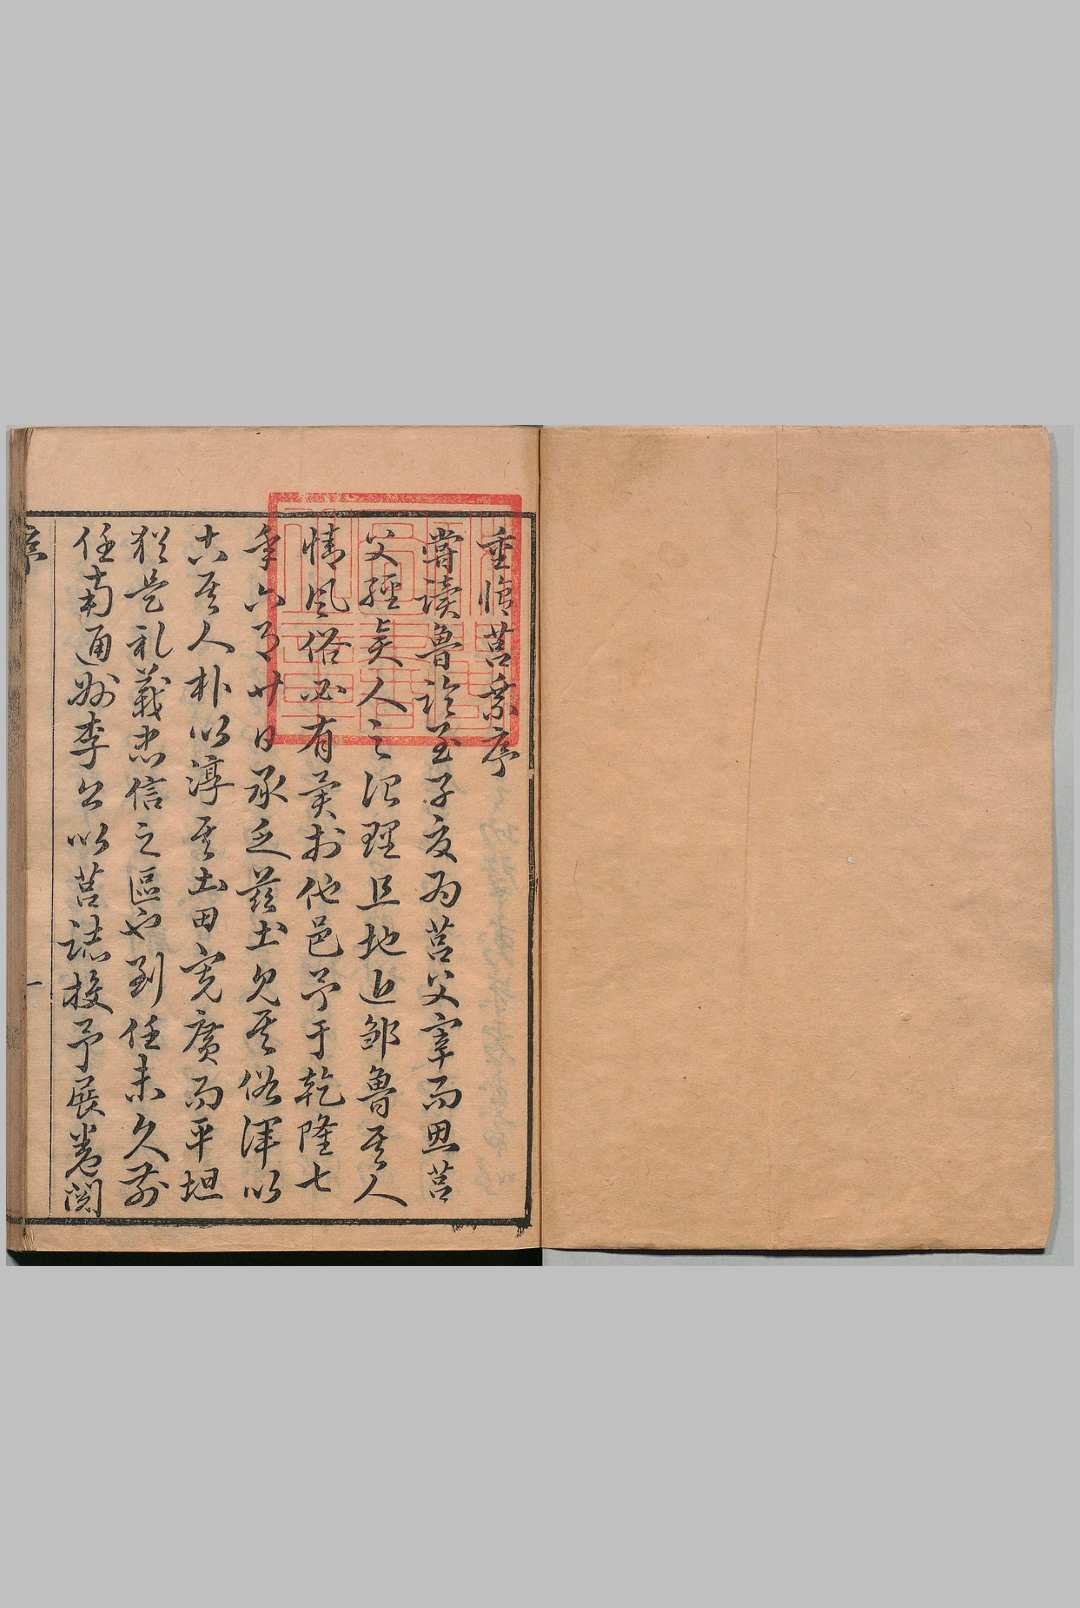 重修莒乘序
嘗读魯论至子夏为莒父宰而思莒
父經矣人之治理且地近邹魯其人
情风俗必有異於他邑予于乾隆七
年六月廿日承乏茲土見其俗渾以
古其人朴以淳其土田寛廣而平坦
猶是礼義忠信之區也到任未久前
任南通州李公以莒誌授予展卷閱
序
一